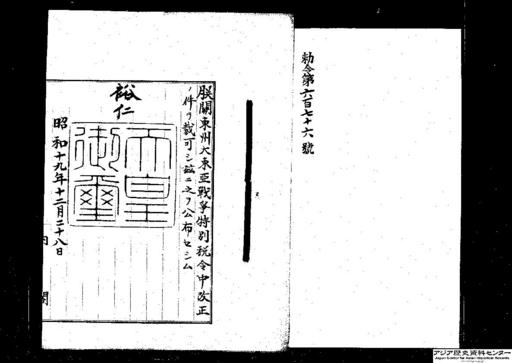 勅令第六百七十六號
朕關東州大東亞戰爭特別税令中改正
ノ件ヲ裁可シ玆ニ之ヲ公布セシム
裕仁
天皇御璽
昭和十九年十二月二十八日
内閣
アジア歴史資料センター
Japan Center for Asian Historical Records